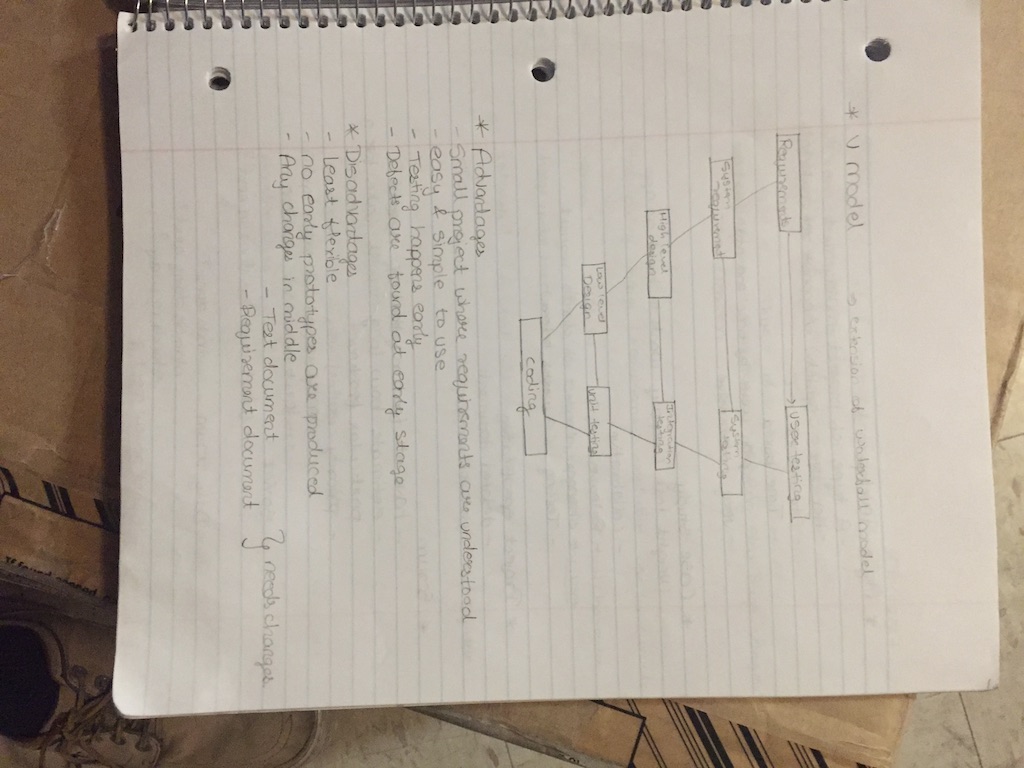 * V model → extension of waterfall model
Requirements
User testing
System
requirement
System
testing
High level
design
Integration
testing
Low level
Design
Unit testing
Coding
* Advantages
- Small project where requirements are understood
- easy & simple to use
- Testing happens early
- Defects are found at early stage
* Disadvantages
- Least flexible
- no early prototypes are produced
- Any changes in middle
- Test document
- Requirement document } needs changes